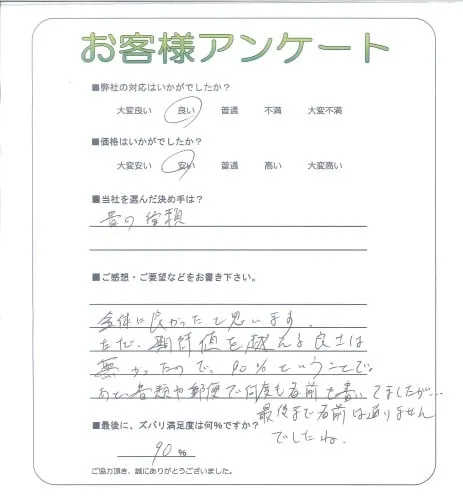 お客様アンケート
■弊社の対応はいかがでしたか？
大変良い 良い 普通 不満 大変不満
■価格はいかがでしたか？
大変安い 安い 普通 高い 大変高い
■当社を選んだ決め手は？
昔の信頼
■ご感想・ご要望などをお書き下さい。
全体に良かったと思います。
ただ、期待値を越える良さは
無かったので、90%ということで。
あと、書類や郵便で何度も名前を書いてましたが…
最後まで名前は直りません
でしたね。
■最後に、ズバリ満足度は何%ですか？
90 %
ご協力頂き、誠にありがとうございました。